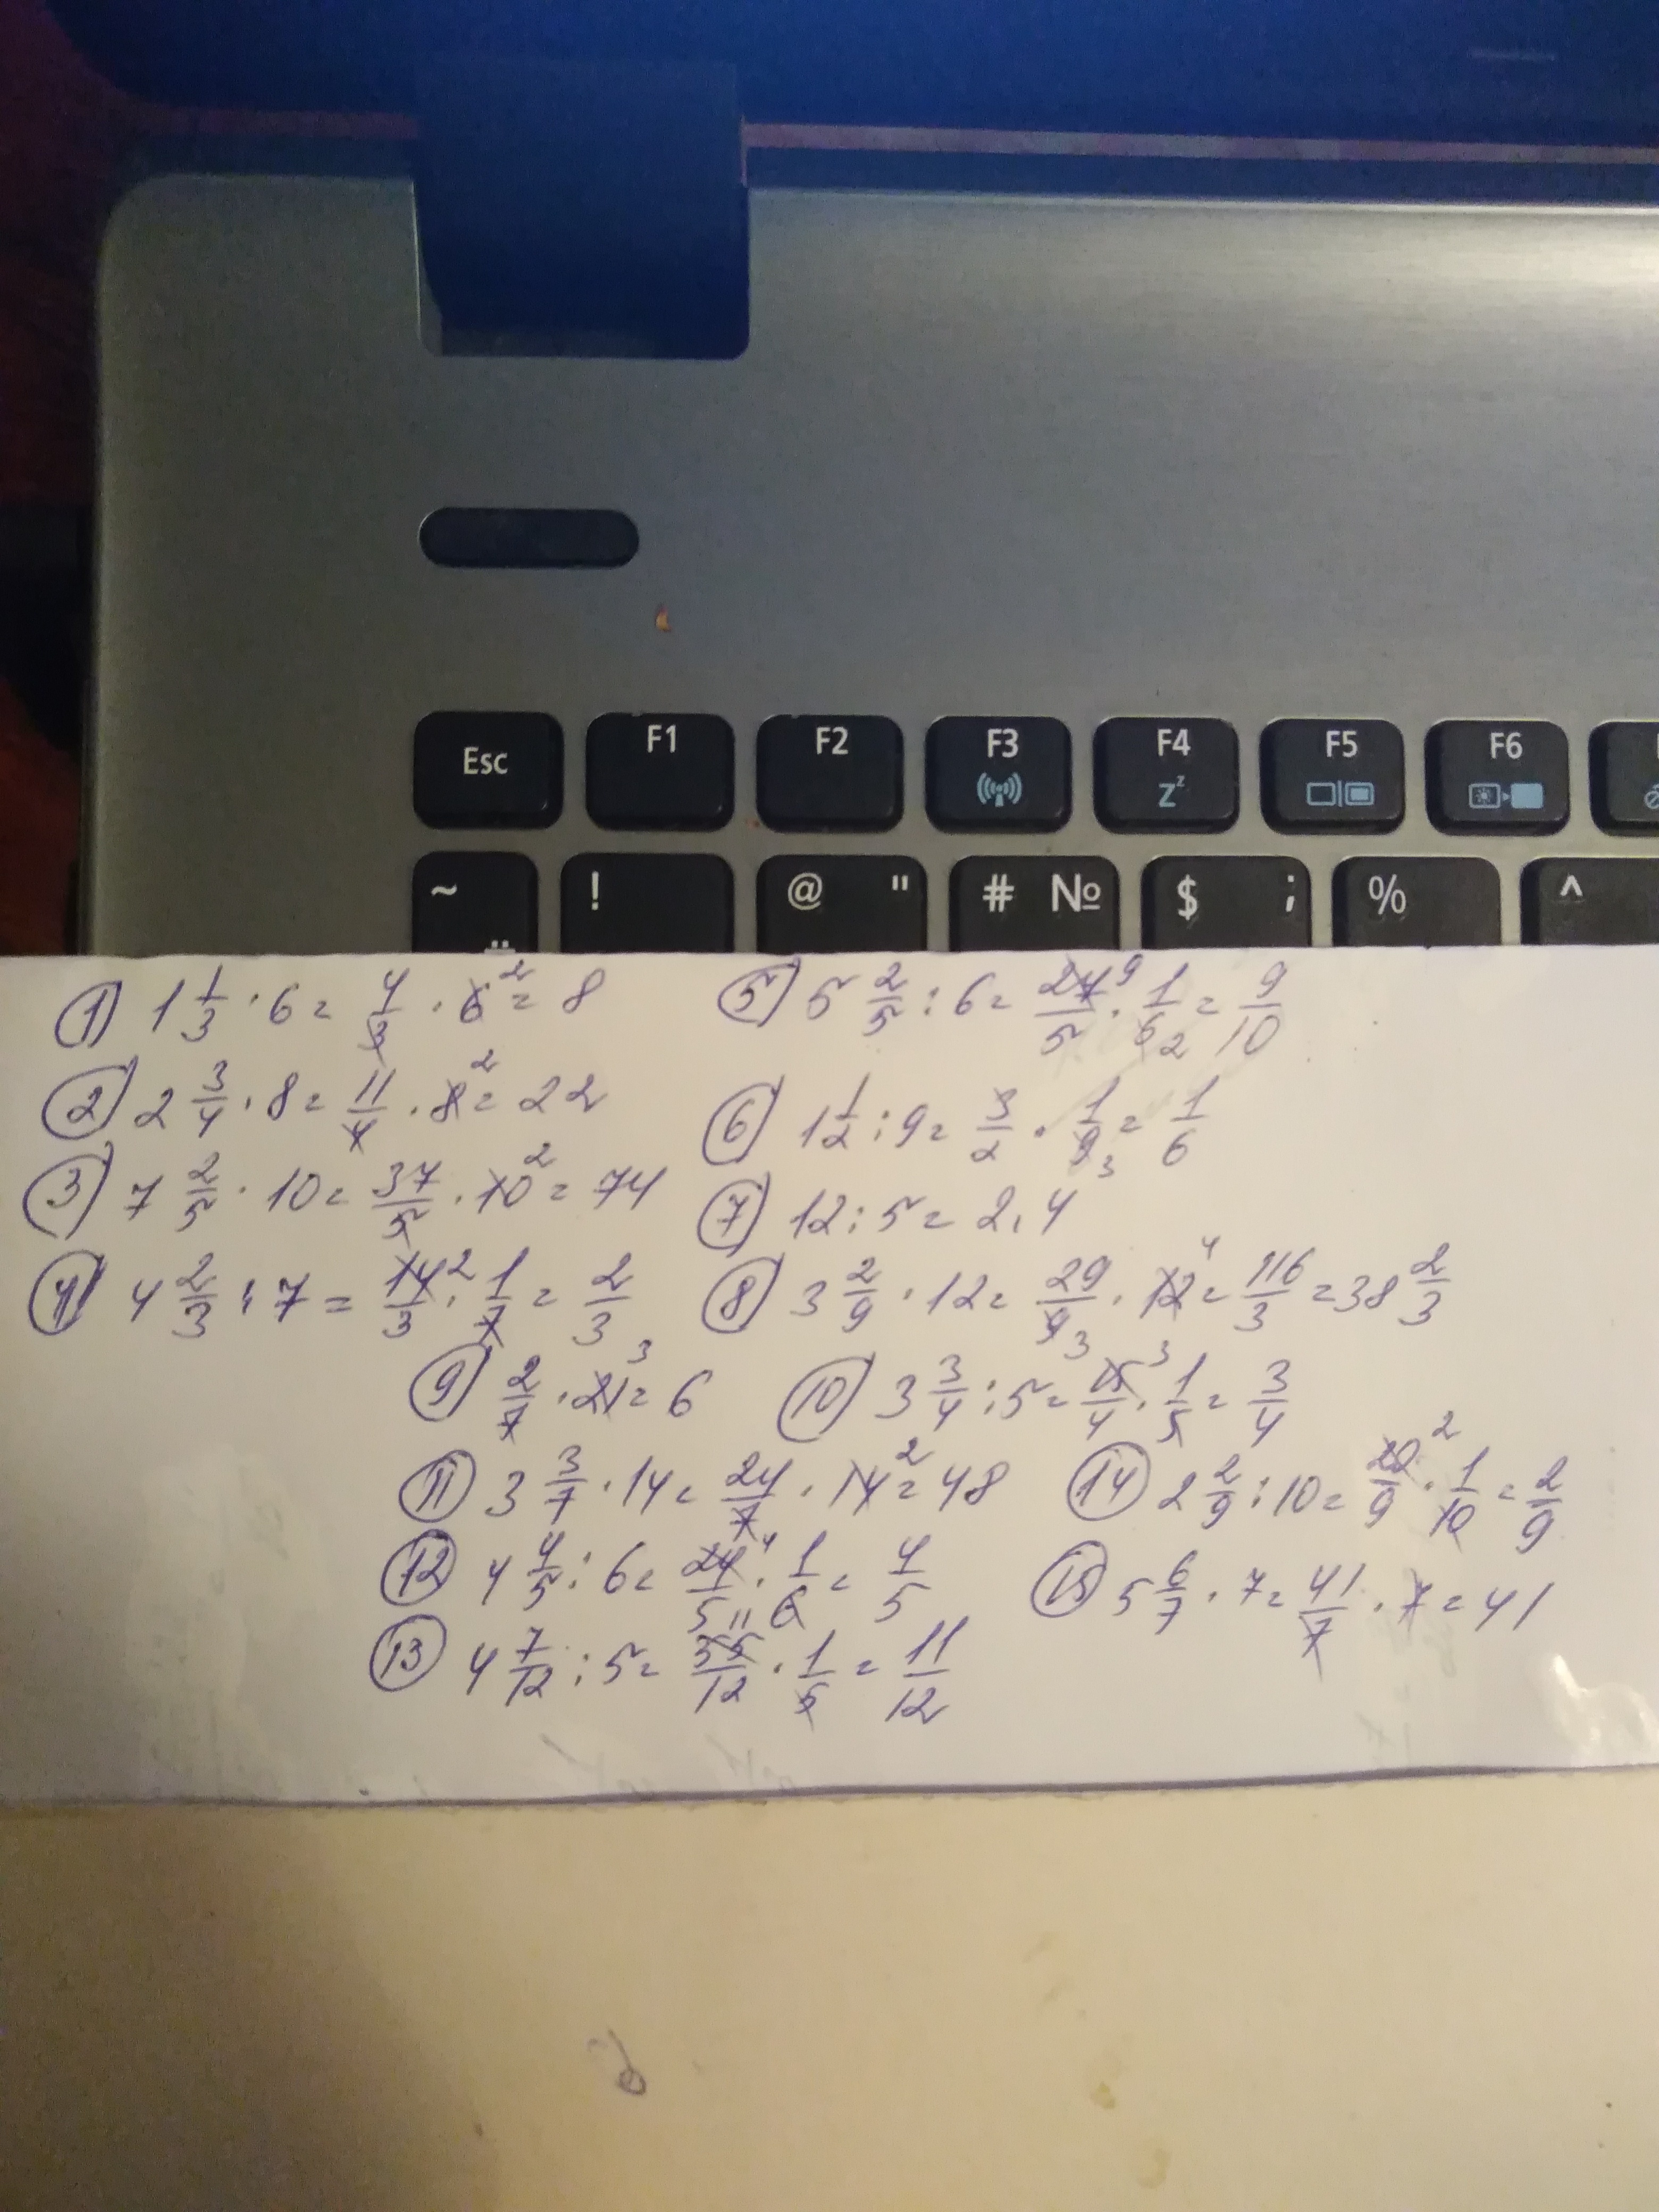 Esc F1 F2 F3 F4 Zz F5 F6
~ ! @ " # № $ ; % ^
① 1 1/3 · 6 = 4/3 · 6 2 = 8
② 2 3/4 · 8 = 11/4 · 8 2 = 22
③ 7 2/5 · 10 = 37/5 · 10 2 = 74
④ 4 2/3 : 7 = 14/3 2 · 1/7 = 2/3
⑤ 5 2/5 : 6 = 27/5 9 · 1/6 2 = 9/10
⑥ 1 1/2 : 9 = 3/2 · 1/9 3 = 1/6
⑦ 12 : 5 = 2,4
⑧ 3 2/9 · 12 = 29/9 3 · 12 4 = 116/3 = 38 2/3
⑨ 2/7 · 21 3 = 6
⑩ 3 3/4 : 5 = 15/4 3 · 1/5 = 3/4
⑪ 3 3/7 · 14 = 24/7 · 14 2 = 48
⑭ 2 2/9 : 10 = 20/9 2 · 1/10 = 2/9
⑫ 4 4/5 : 6 = 24/5 4 · 1/6 = 4/5
⑮ 5 6/7 · 7 = 41/7 · 7 = 41
⑬ 4 7/12 : 5 = 55/12 11 · 1/5 = 11/12